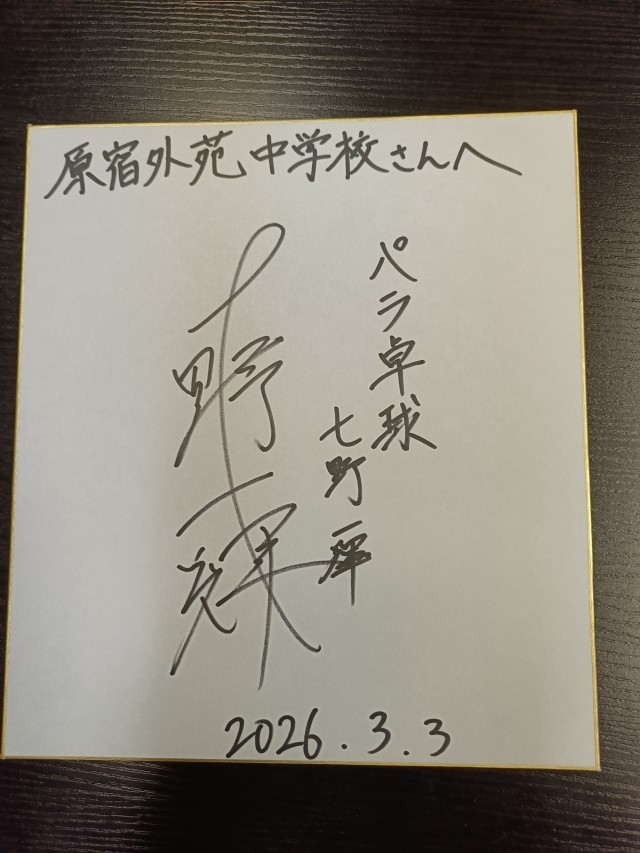 原宿外苑中学校さんへ
パラ卓球
七野一輝
七野一輝
2026.3.3